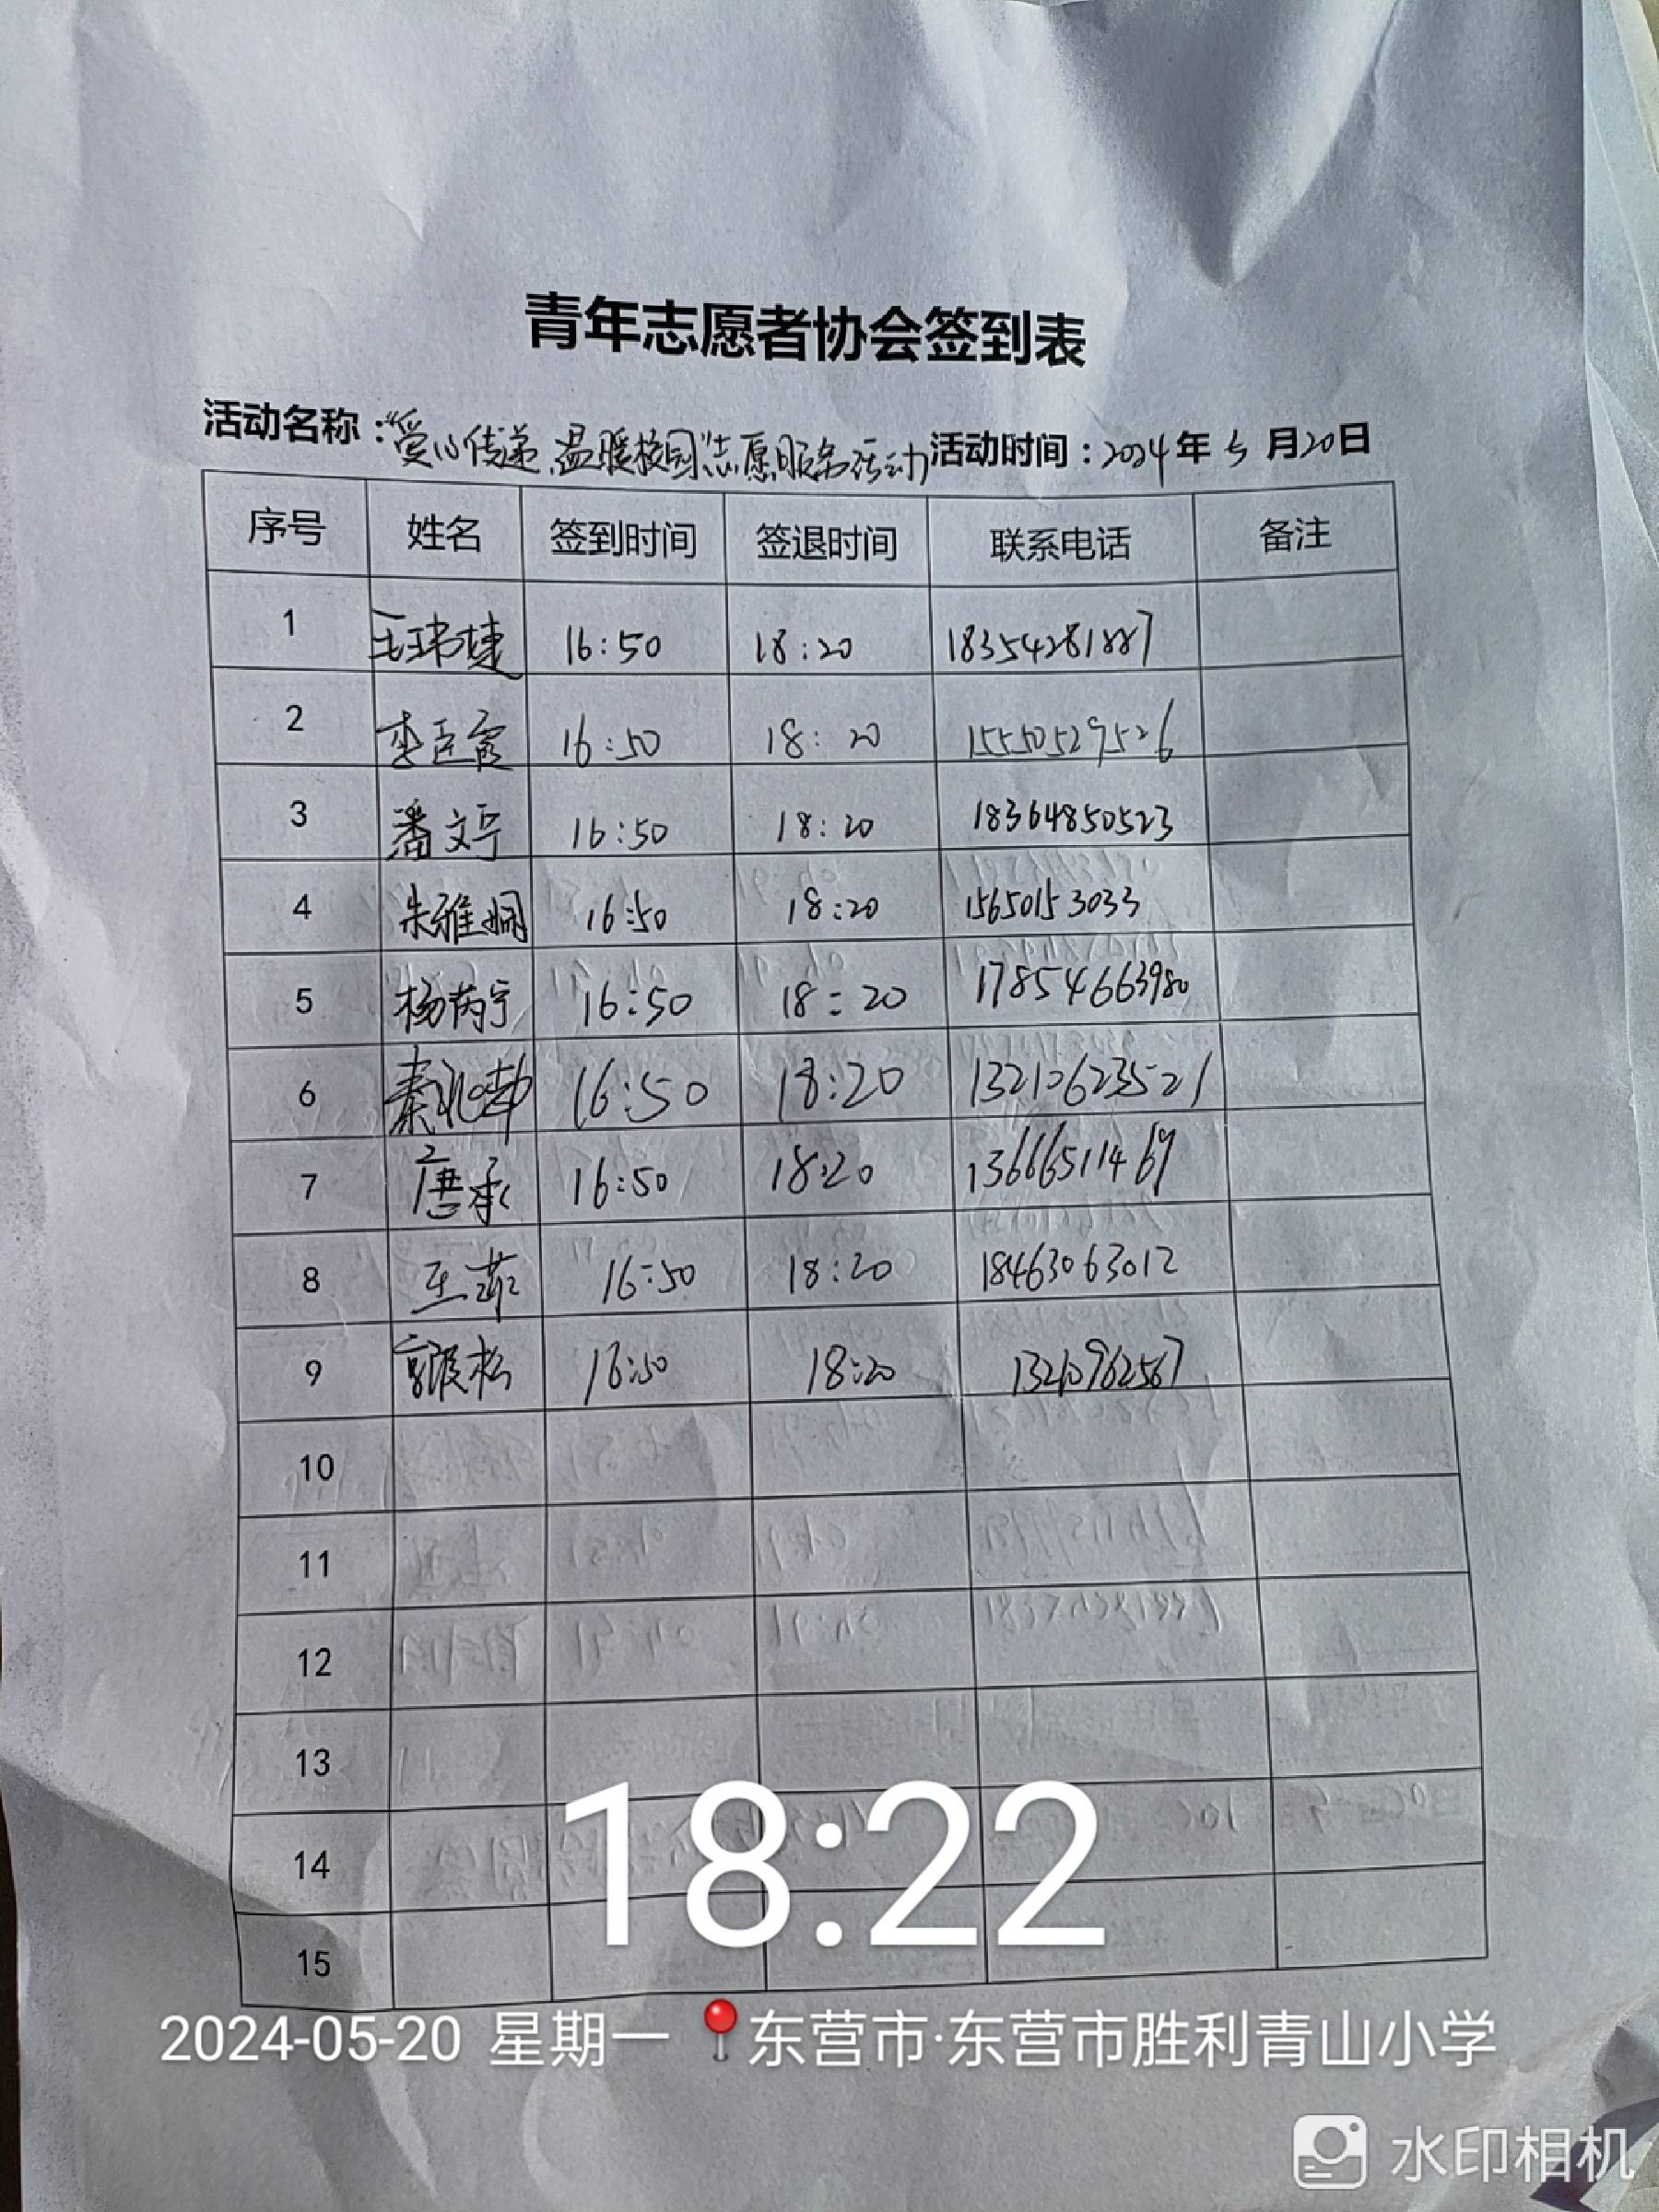 青年志愿者协会签到表
活动名称:“爱心传递,温暖校园”志愿服务活动 活动时间:2024年5月20日
序号 姓名 签到时间 签退时间 联系电话 备注
1 王玮婕 16:50 18:20 18354281887
2 李臣霞 16:50 18:20 15550529526
3 潘文宁 16:50 18:20 18364850523
4 朱雅娴 16:50 18:20 15650153033
5 杨芮宁 16:50 18:20 17854663980
6 秦 16:50 18:20 13210623521
7 唐承 16:50 18:20 13666511469
8 王菲 16:50 18:20 18463063012
9 16:50 18:20
10
11
12
13
14
15
18:22
2024-05-20 星期一 东营市·东营市胜利青山小学
水印相机